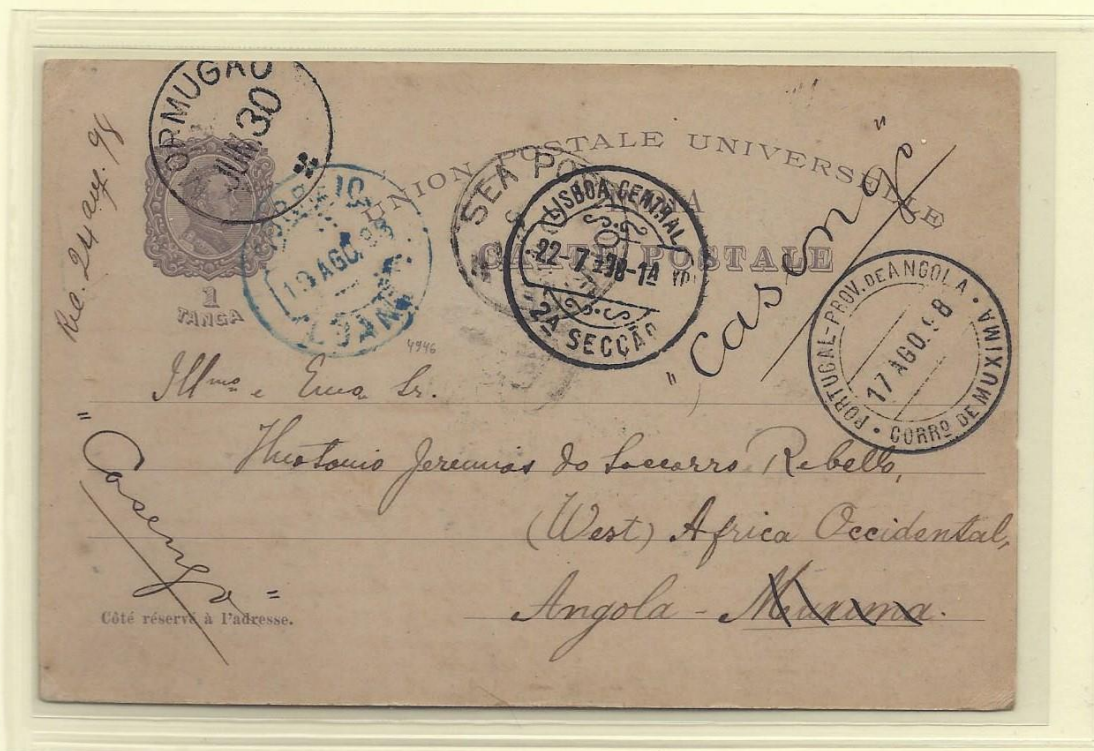 Rec. 24 aug. 98
ORMUGAO
JUN 30
UNION POSTALE UNIVERSELLE
SEA PO
CARTE POSTALE
1
TANGA
CORREIO
19 AGO. 98
LOANDA
4946
LISBOA CENTRAL
22-7 98-1A
2A SECÇÃO
"Casengo"
PORTUGAL-PROV. DE ANGOLA
17 AGO. 98
CORRO DE MUXIMA
Illmo e Exmo Sr.
Theotonio Jeremias do Soccorro Rebello,
(West) Africa Occidental,
Angola - Muxima.
"Casengo"
Côté réservé à l'adresse.